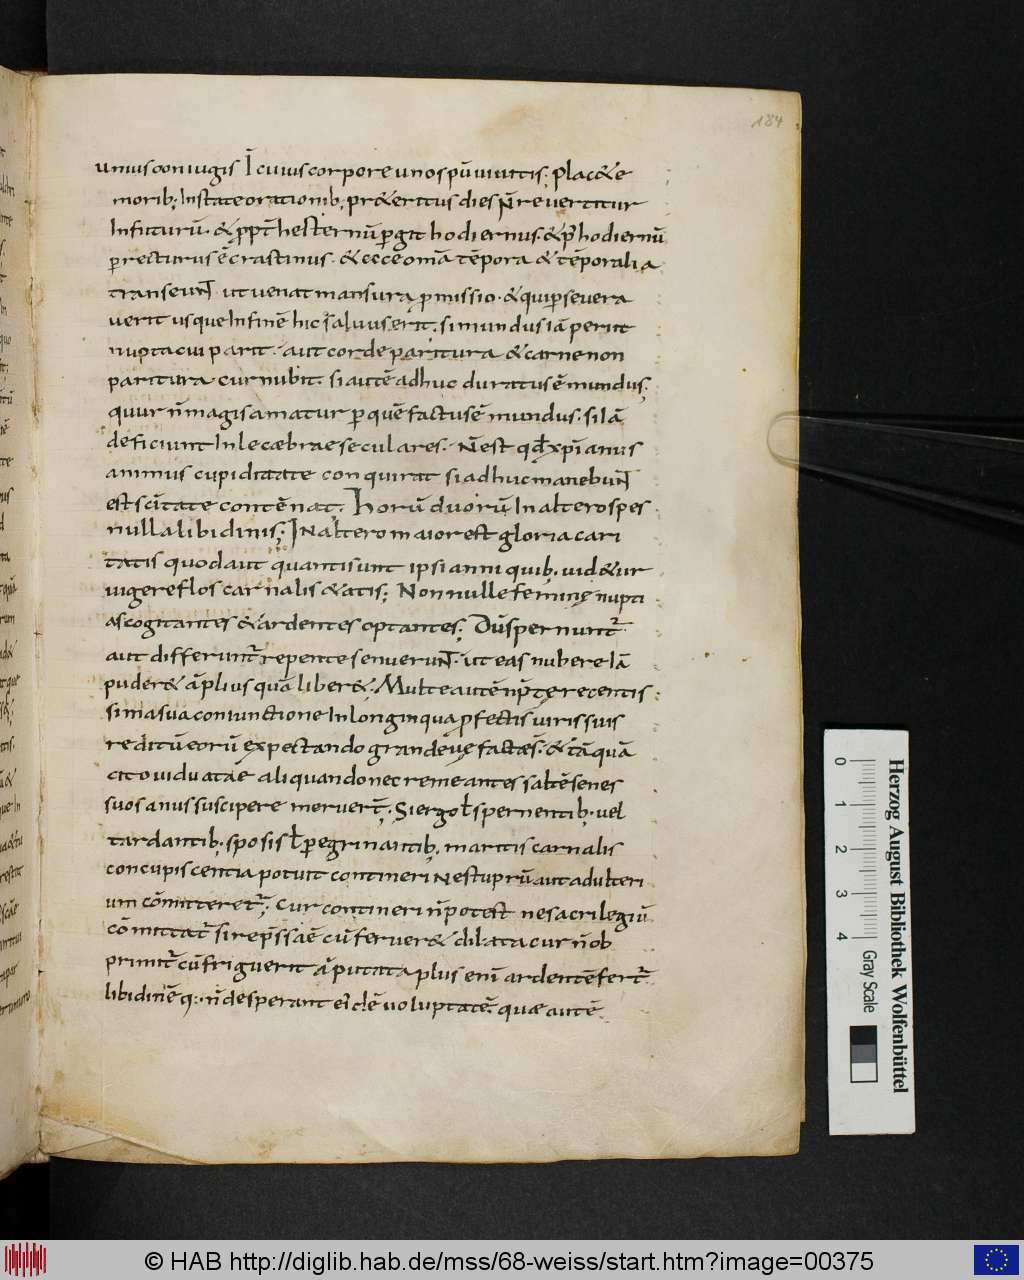 184
unius coniugis Ī cuius corpore unospū uiuitis; plac&e
morib; Instate orationib; pr&eritus dies ñ reuertitur
Infuturū· & ꝓpt̄ hesternū ꝑgit hodiernus· & p̄ hodiernū
ꝑrecturus ē crastinus· & ecce omīa tēpora & tēporalia
transeunt ut ueniat mansura ꝓmissio· & qui ꝑseuera
uerit usque Infinē hic saluus erit· simundus iā perit
nupta cui parit· aut corde paritura & carne non
paritura cur nubit· si autē adhuc duraturus ē mundus;
quur ñ magis amatur ꝑ quē factus ē mundus· si iā
deficiunt Inlecæbrae seculares· Nest qđ xp̄ianus
animus cupiditate conquirat si adhuc manebunt
est scītate contēnat; horū duorū In altero spes
nulla libidinis; INaltero maior est gloria cari
tatis quod aut quanti sunt ipsi anni quib; uid&ur
uigere flos carnalis &atis; Non nulle feminę nupti
as cogitantes & ardentes optantes; Dū spernunt̄
aut differunt̄ repente senuerunt· ut eas nubere iā
puder& āplius quā liber&; Multe autē nuptę recentis
sima sua coniunctione In longinqua ꝓfectis uiris suis
reditū eorū expectando grandeuę factæ s̄· & tāquā
cito uiduatae aliquando nec remeantes saltē senes
suos anus suscipere meruer̄t; Si ergo ł spernentib; uel
tardantib; sposis ł ꝑegrinantib; maritis carnalis
concupiscentia potuit contineri Ne stuprū aut adulteri
um cōmitteret̄; cur contineri ñ potest ne sacrilegiū
cōmittat̄ si rep̄ssa ē cū feruer& dilata cur ñ ob
primit̄ cū friguerit āputata plus enī ardentē fert̄
libidinē q· ñ desperant eidē uoluptatē· quae autē
Herzog August Bibliothek Wolfenbüttel
0 1 2 3 4
Gray Scale
© HAB http://diglib.hab.de/mss/68-weiss/start.htm?image=00375